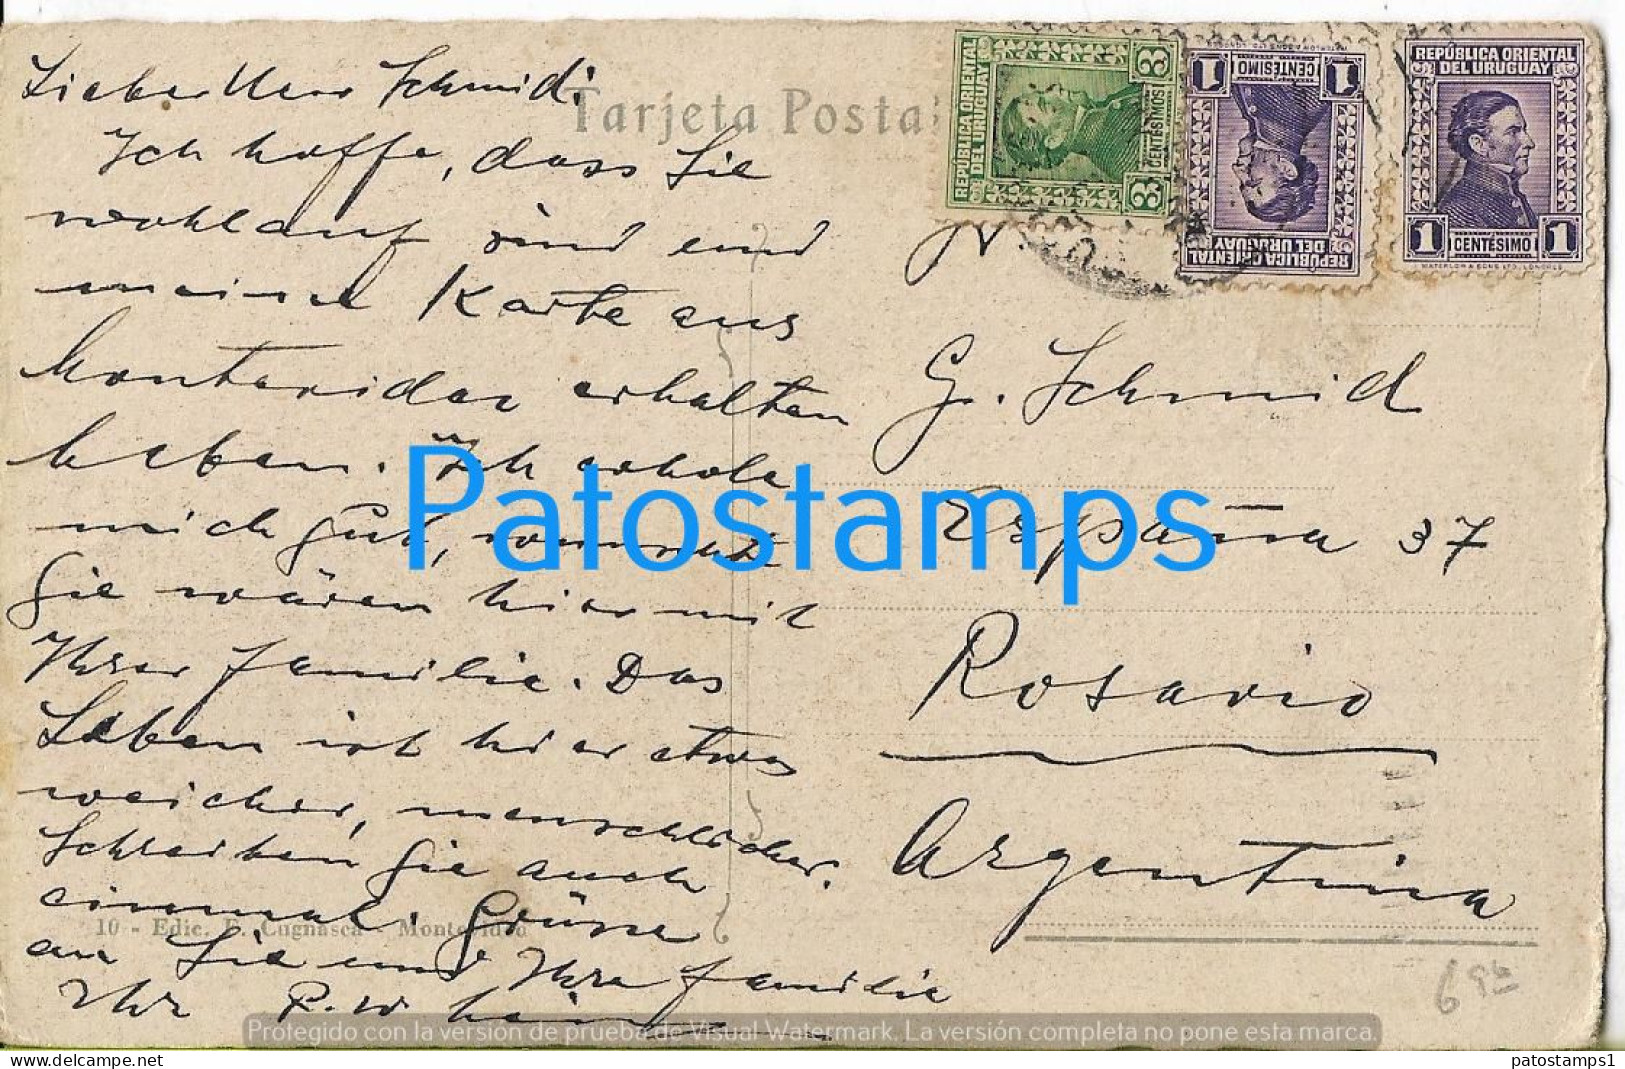 Tarjeta Posta
Lieber Herr Schmid:
Ich hoffe, dass Sie
wohlauf sind und
meine Karte aus
Montevideo erhalten
haben. Ich erhole
mich gut, wünscht
Sie wären hier mit
Ihrer Familie. Das
Leben ist hier etwas
weicher, menschlicher.
Schreiben Sie auch
einmal. Grüsse
an Sie und Ihre Familie
Ihr P. W.
10 - Edic. F. Cugnasca - Montevideo
REPÚBLICA ORIENTAL
DEL URUGUAY
3 CENTÉSIMOS 3
REPÚBLICA ORIENTAL
DEL URUGUAY
1 CENTÉSIMO 1
WATERLOW & SONS LTD. LONDRES
REPÚBLICA ORIENTAL
DEL URUGUAY
1 CENTÉSIMO 1
WATERLOW & SONS LTD. LONDRES
G. Schmid
España 37
Rosario
Argentina
Patostamps
Protegido con la versión de prueba de Visual Watermark. La versión completa no pone esta marca.
patostamps1